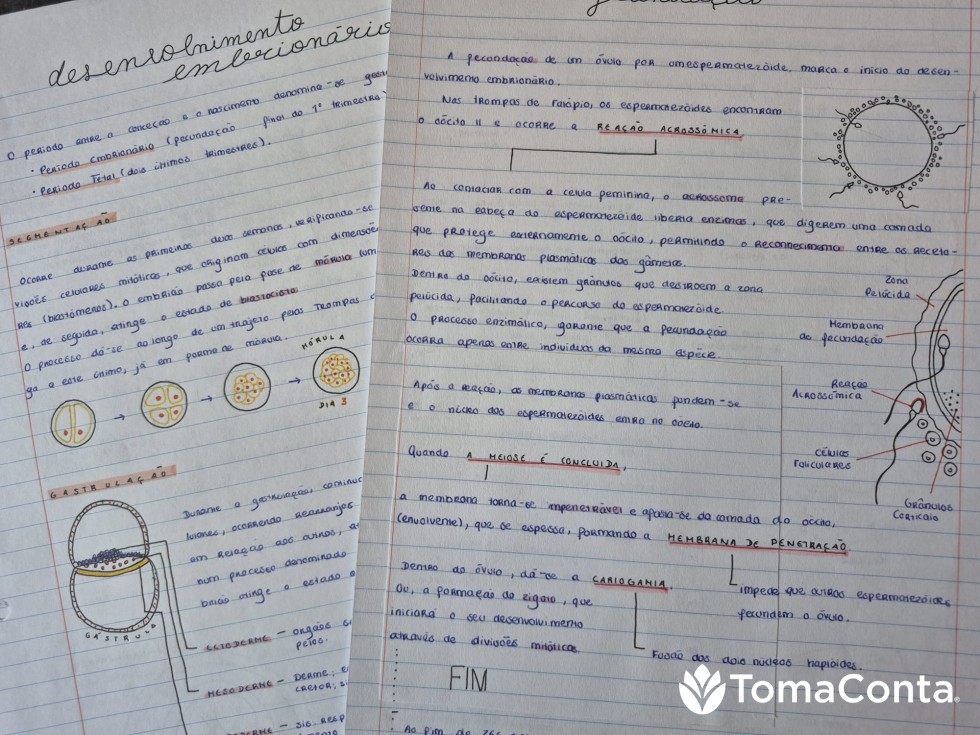 desenvolvimento
embrionário
O período entre a conceção e o nascimento denomina-se
• Período Embrionário (fecundação final do 1º trimestre)
• Período Fetal (dois últimos trimestres).
SEGMENTAÇÃO
Ocorre durante as primeiras duas semanas, verificando-se
visões celulares mitóticas, que originam células com
res (blastómeros). O embrião passa pela fase de mórula
e, de seguida, atinge o estado de blastocisto.
O processo dá-se ao longo de um trajeto pelas trompas
ga a este último, já em forma de mórula.
MÓRULA
DIA 3
GASTRULAÇÃO
Durante a gastrulação,
lulares, ocorrendo rearranjos
em relação aos outros,
num processo denominado
atinge o estado
GÁSTRULA
ECTODERME – ORGÃOS
PELOS.
MESODERME – DERME,
– SIS. RESP
A fecundação de um óvulo por um espermatezóide, marca o início do desen-
volvimento embrionário.
Nas trompas de falópio, os espermatezóides encontram
o oócito II e ocorre a REAÇÃO ACROSSÓMICA
Ao contactar com a célula feminina, o acrossoma pre-
sente na cabeça do espermatezóide liberta enzimas, que digerem uma camada
que protege externamente o oócito, permitindo o reconhecimento entre os receto-
res das membranas plasmáticas dos gâmetas.
Dentro do oócito, existem grânulos que destroem a zona
pelúcida, facilitando o percurso do espermatezóide
O processo enzimático, garante que a fecundação
ocorra apenas entre indivíduos da mesma espécie.
Zona
Pelúcida
Membrana
de fecundação
Reação
Acrossómica
Células
Foliculares
Grânulos
Corticais
Após a reação, as membranas plasmáticas fundem-se
e o núcleo dos espermatezóides entra no oócito.
Quando A MEIOSE É CONCLUIDA,
a membrana torna-se impenetrável e afasta-se da camada do oócito,
(envolvente), que se espessa, formando a MEMBRANA DE PENETRAÇÃO
impede que outros espermatezóides
fecundem o óvulo.
Dentro do óvulo, dá-se a CARIOGAMIA.
Ou, a formação do zigoto, que
iniciará o seu desenvolvimento
através de divisões mitóticas
Fusão dos dois núcleos haplóides.
FIM
Ao fim de
TomaConta